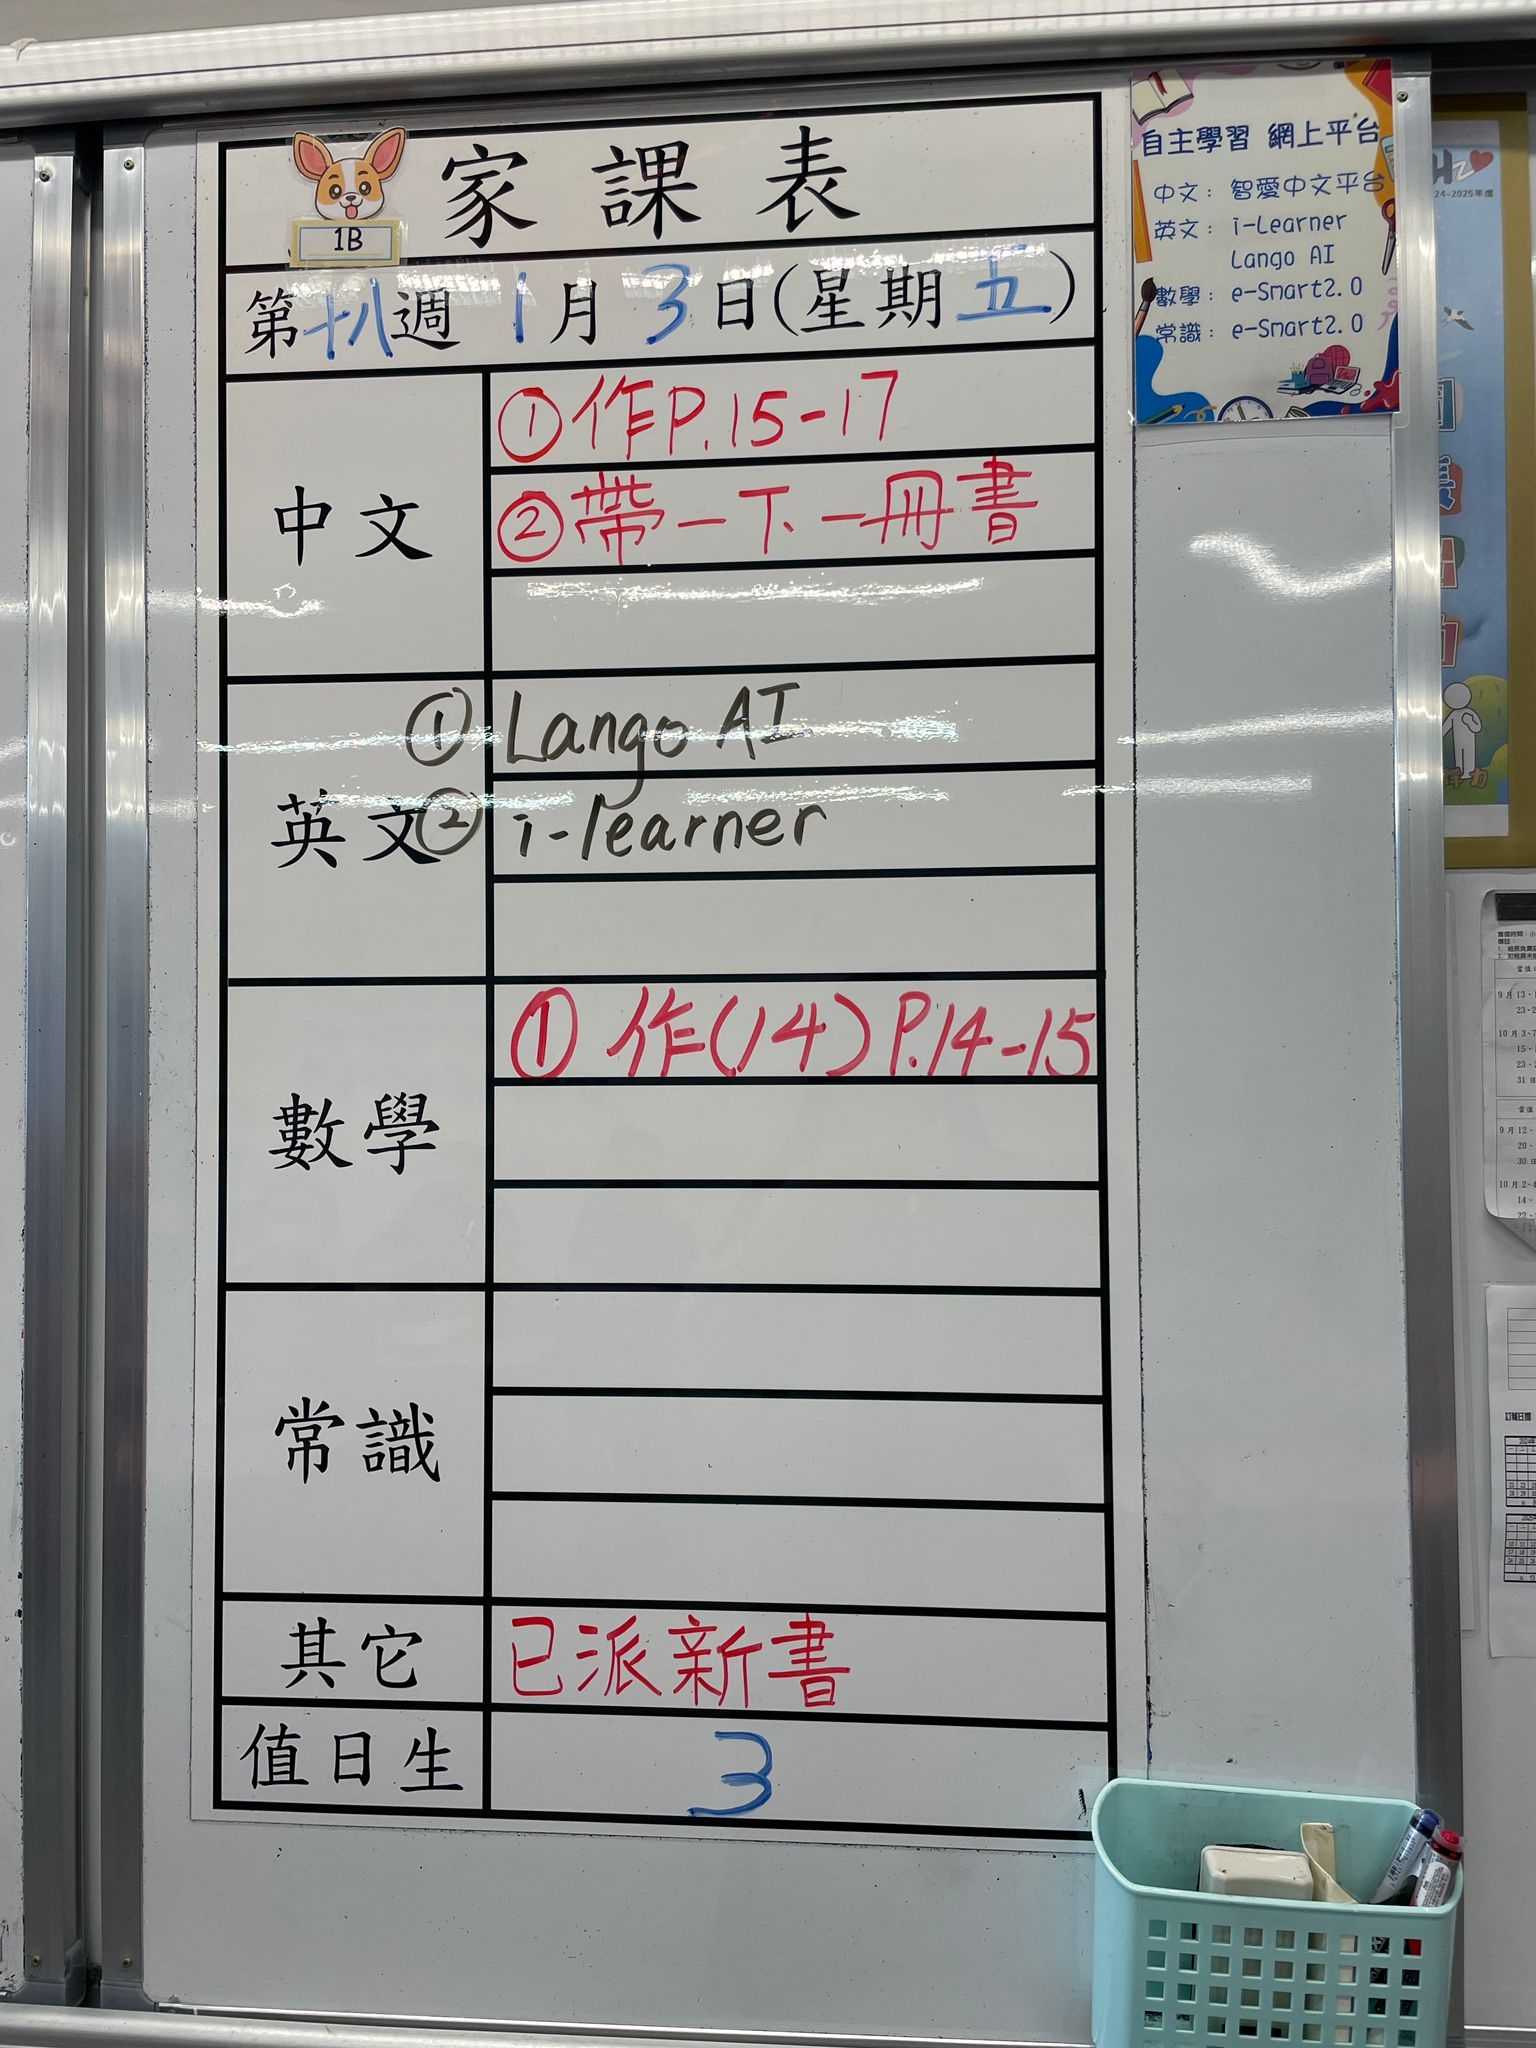 家課表
1B
第十八週 1月3日(星期五)
中文
①作P.15-17
②帶一下一冊書
英文
① Lango AI
② i-learner
數學
① 作(14) P.14-15
常識
其它
已派新書
值日生
3
自主學習 網上平台
中文: 智愛中文平台
英文: i-Learner
Lango AI
數學: e-Smart2.0
常識: e-Smart2.0
24-2025年度